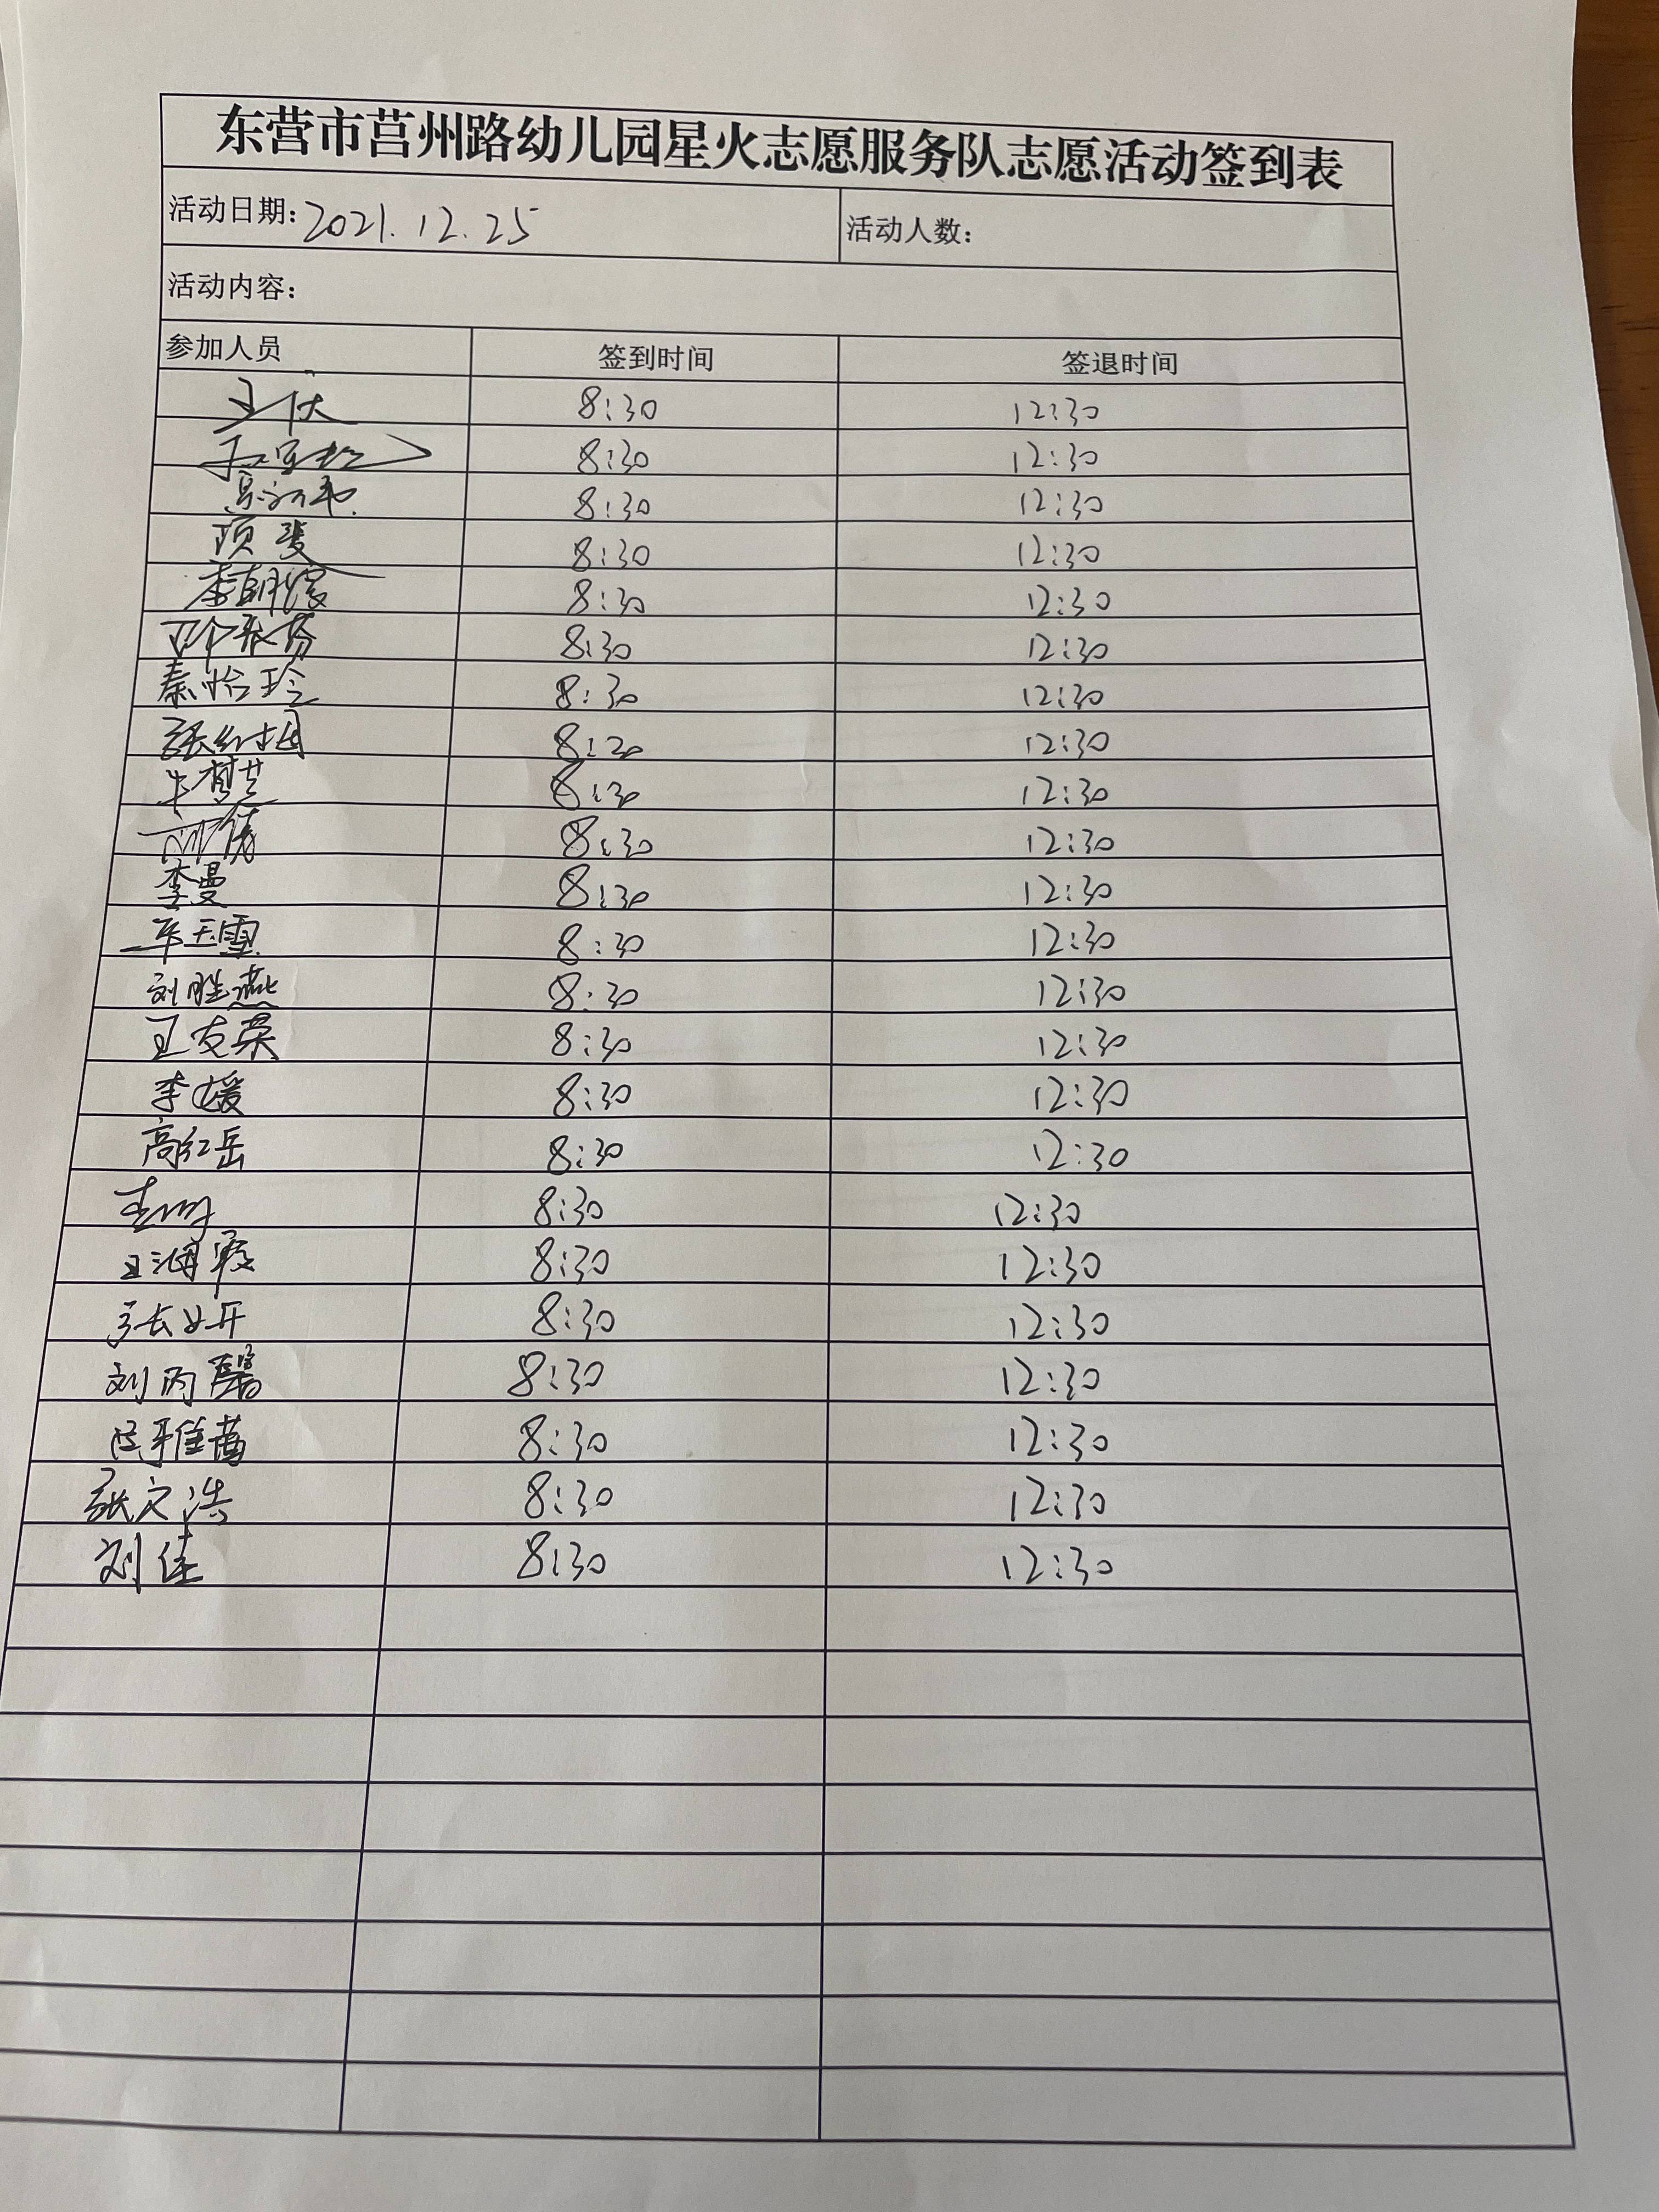 东营市莒州路幼儿园星火志愿服务队志愿活动签到表
活动日期: 2021.12.25 活动人数:
活动内容:
参加人员 签到时间 签退时间
8:30 12:30
8:30 12:30
8:30 12:30
项斐 8:30 12:30
李朝霞 8:30 12:30
8:30 12:30
秦怡玲 8:30 12:30
张红娟 8:20 12:30
牛梦芝 8:30 12:30
邵倩 8:30 12:30
李曼 8:30 12:30
车玉雪 8:30 12:30
刘胜燕 8:30 12:30
王友英 8:30 12:30
李媛 8:30 12:30
高红岳 8:30 12:30
8:30 12:30
王海霞 8:30 12:30
张妍 8:30 12:30
刘丙馨 8:30 12:30
吕雅茜 8:30 12:30
张文浩 8:30 12:30
刘佳 8:30 12:30